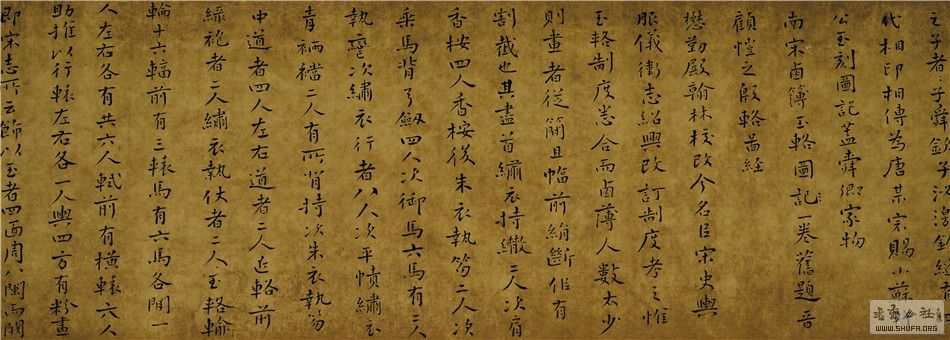 之子者子舜欽子
代相印相傳為唐某宗賜小蘇
公玉刻圖記蓋舜卿家物
南宋鹵簿玉輅圖記一卷舊題晉
顧愷之殷輅嵓經
懋勤殿翰林校改今名臣宋史輿
服儀衛志紹興改訂制度考之惟
玉輅制度悉合而鹵薄人數太少
則畫者從簡且幅前絹斷佀有
割截也其畫首繡衣持繖二人次肩
香桉四人香桉後朱衣執笏二人次
乘馬背弓劔四人次御馬六馬有二人
執鞚次繡衣行者八人次平幘繡衣
青裲襠二人有所背持次朱衣執笏
中道者四人左右道者二人近輅前
綠袍者二人繡衣執仗者二人玉輅輪
輪十六輻前有三轅馬有六馬各閒一
人左右各有共六人軾前有橫轅六人
助推以行轅左右各一人輿四方有粉畫
即宋志所云飾以玉者四面周以闌而闕
北海公社
WWW.SHUFA.ORG